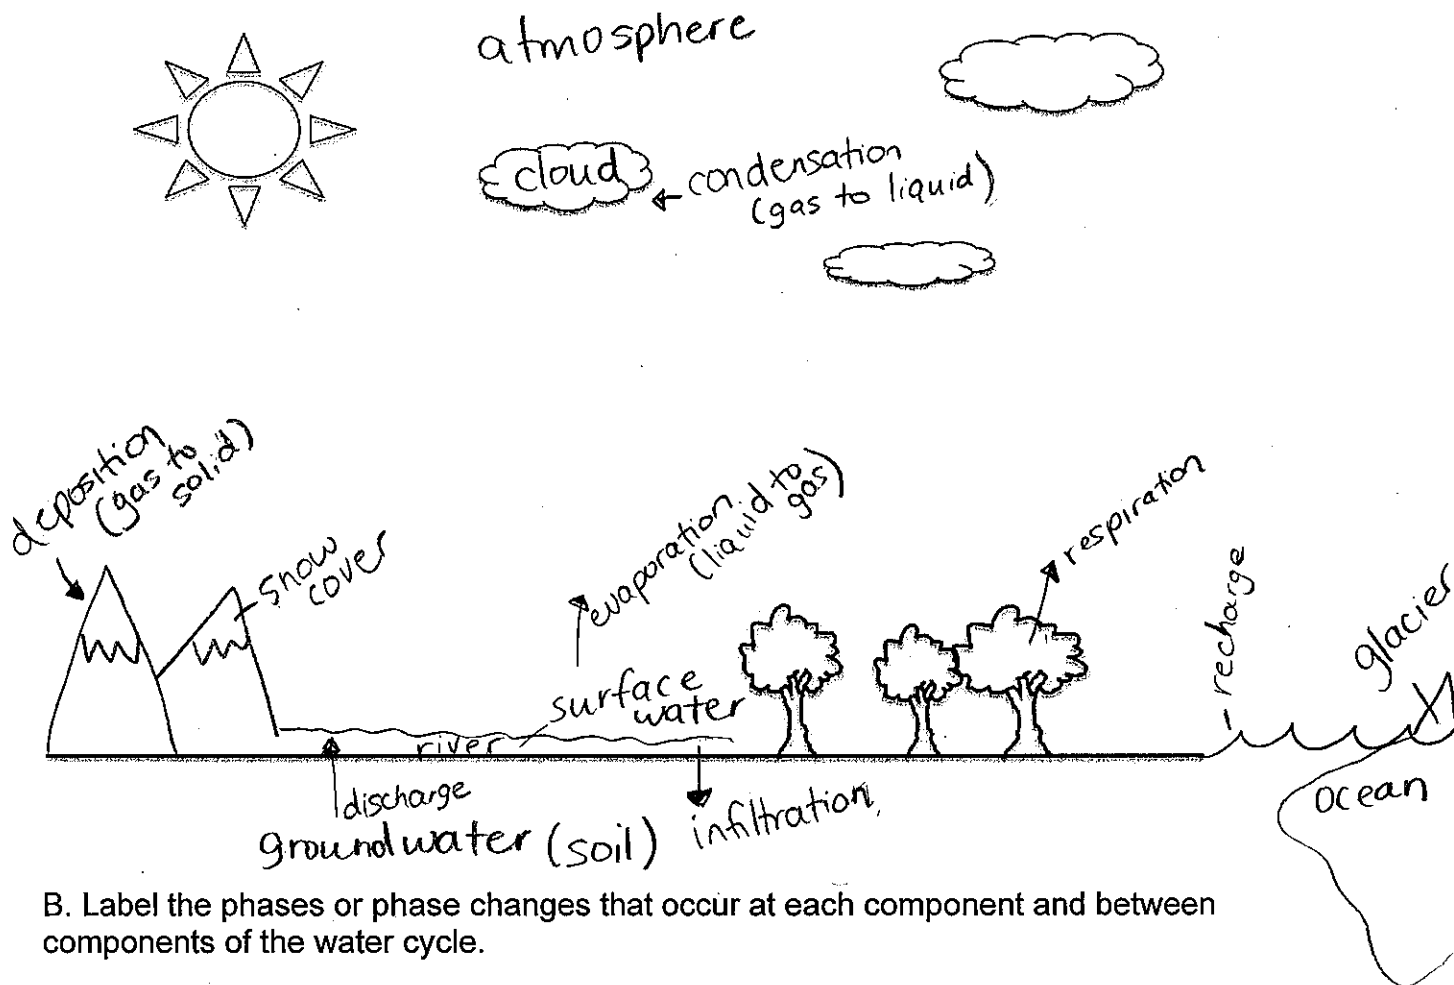 atmosphere
cloud
condensation
(gas to liquid)
deposition
(gas to
solid)
snow
cover
evaporation
(liquid to
gas)
respiration
recharge
glacier
surface
water
river
ocean
discharge
groundwater (soil)
infiltration
B. Label the phases or phase changes that occur at each component and between
components of the water cycle.